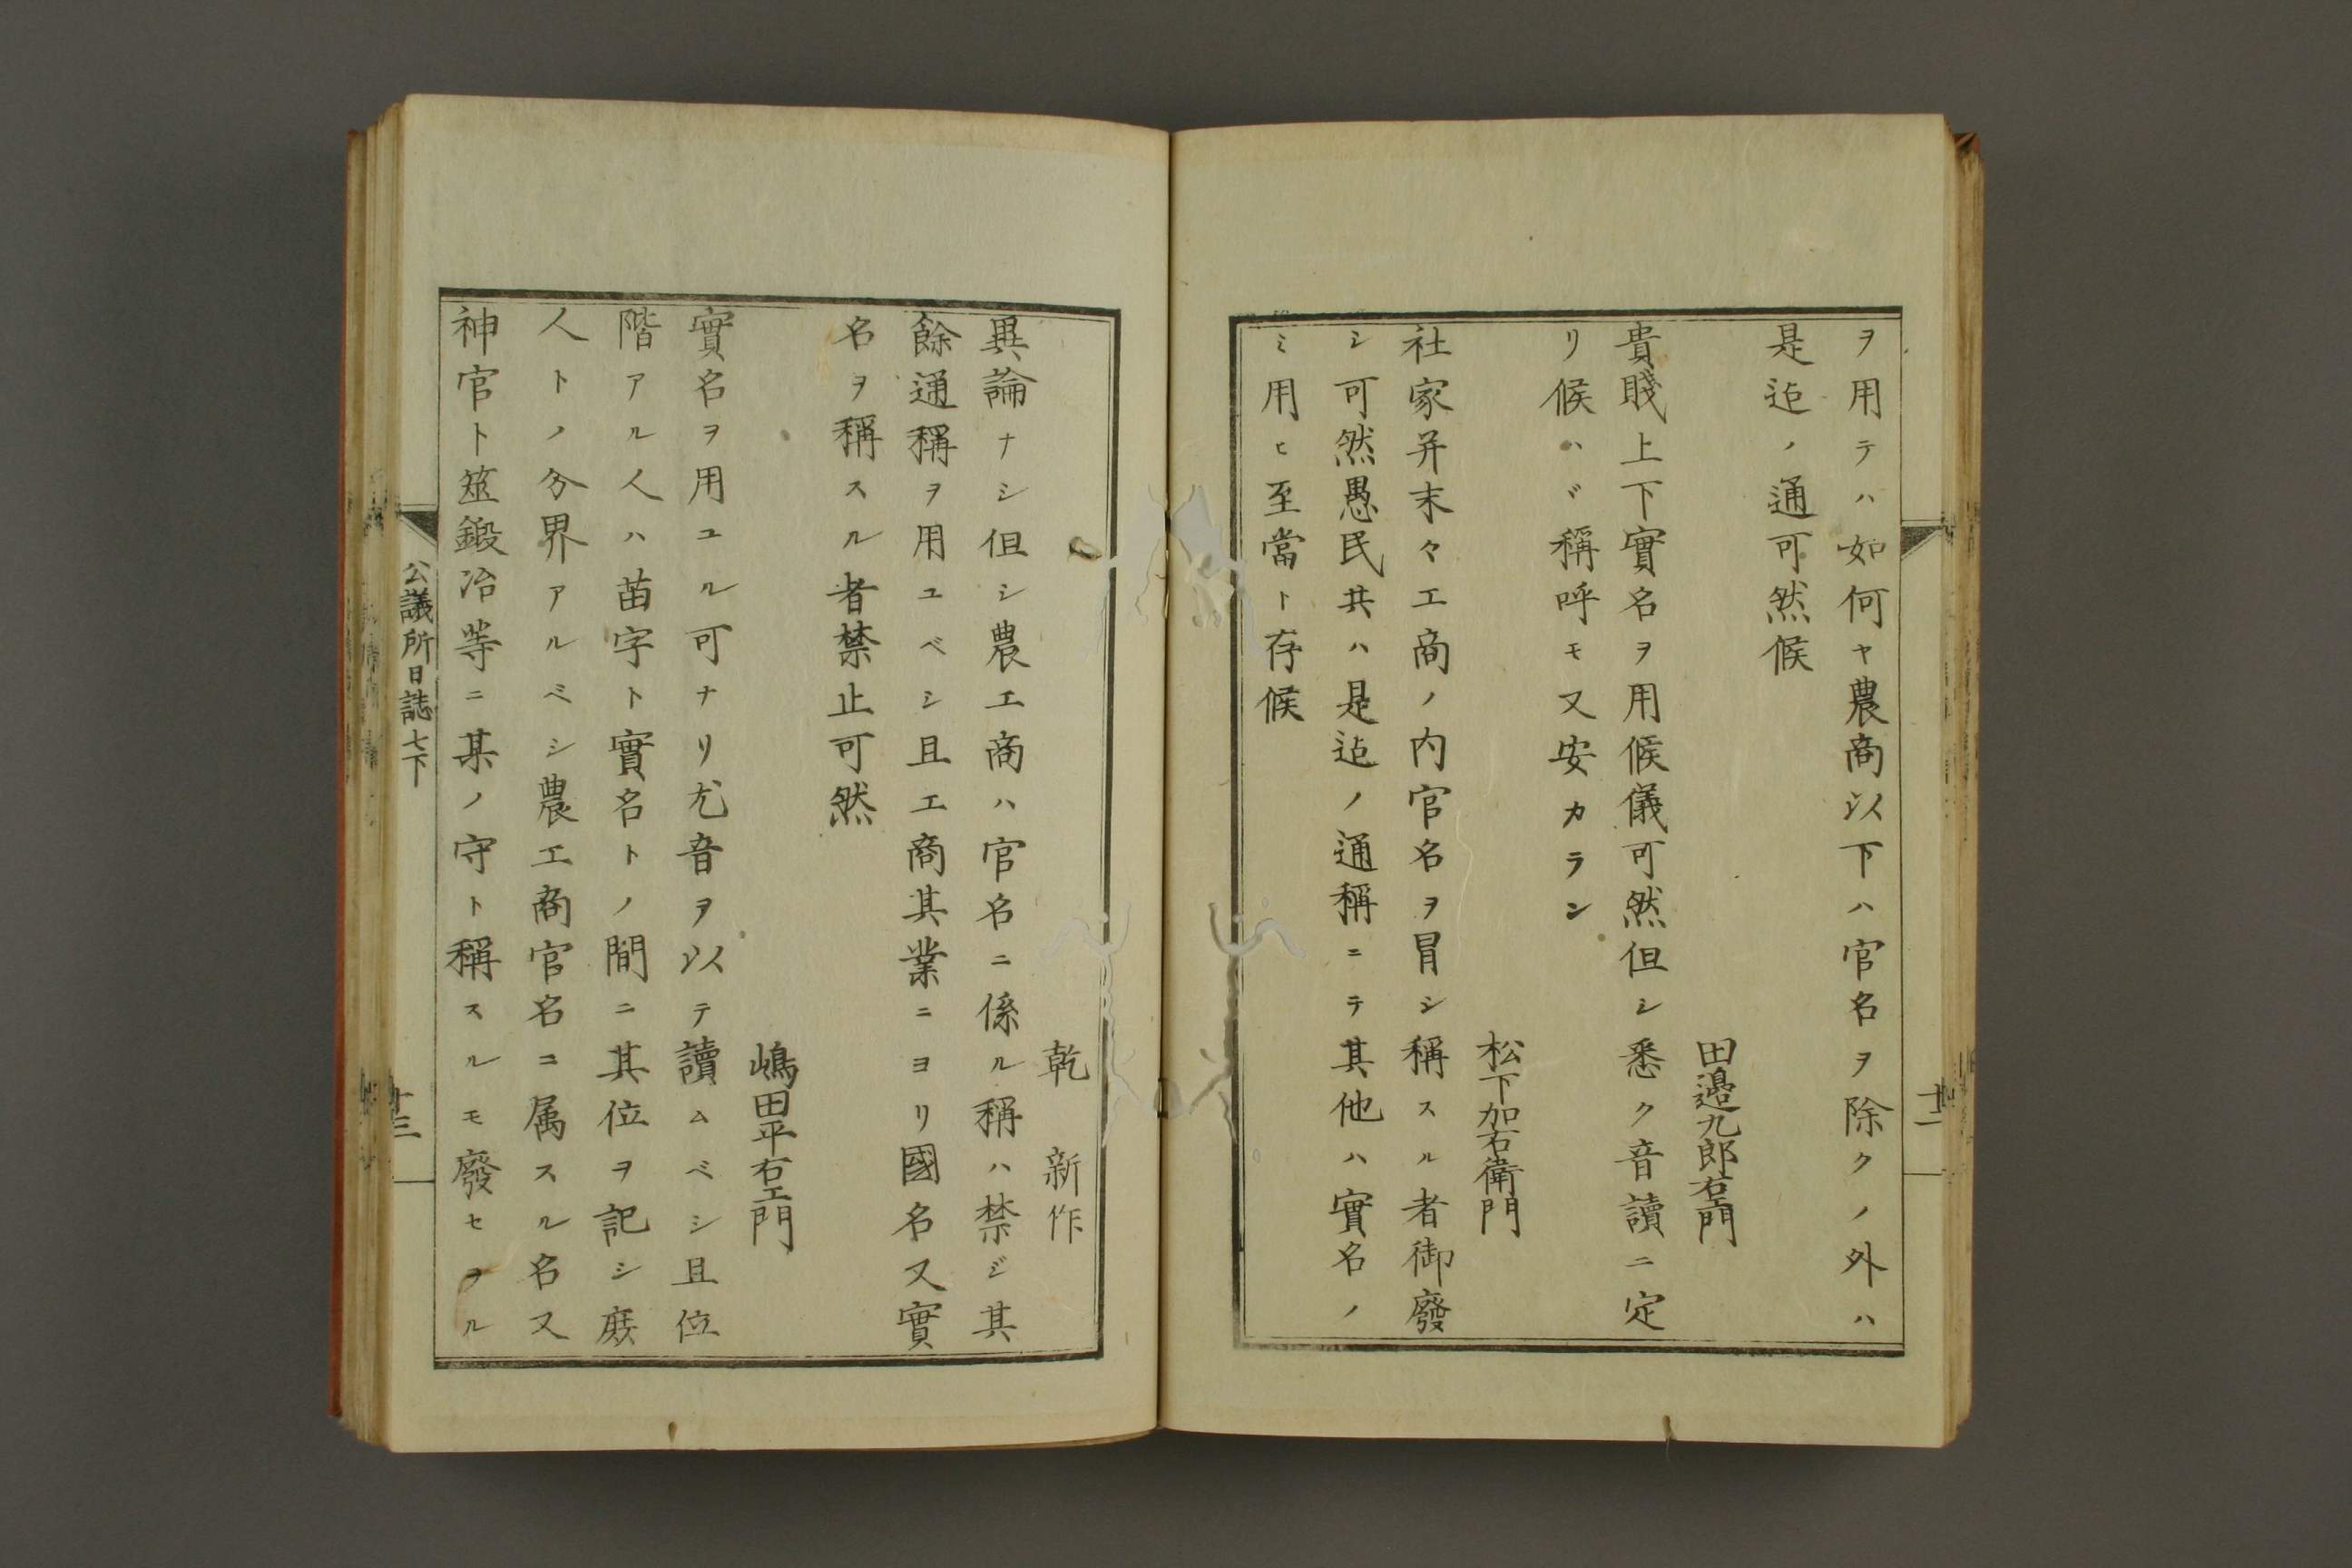 ヲ用テハ如何ヤ農商以下ハ官名ヲ除クノ外ハ
是迠ノ通可然候
田邉九郎右エ門
貴賤上下實名ヲ用候儀可然但シ悉ク音讀ニ定
リ候ハヾ稱呼モ又安カラン
松下加右衛門
社家并末々工商ノ内官名ヲ冒シ稱スル者御廢
シ可然愚民共ハ是迠ノ通稱ニテ其他ハ實名ノ
ミ用ヒ至當ト存候
十二
乾新作
異論ナシ但シ農工商ハ官名ニ係ル稱ハ禁ジ其
餘通稱ヲ用ユベシ且工商其業ニヨリ國名又實
名ヲ稱スル者禁止可然
嶋田平右エ門
實名ヲ用ユル可ナリ尤音ヲ以テ讀ムベシ且位
階アル人ハ苗字ト實名トノ間ニ其位ヲ記シ庶
人トノ分界アルベシ農工商官名コ属スル名又
神官ト筮鍛冶等ニ某ノ守ト稱スルモ廢セラル
公議所日誌七下
十三